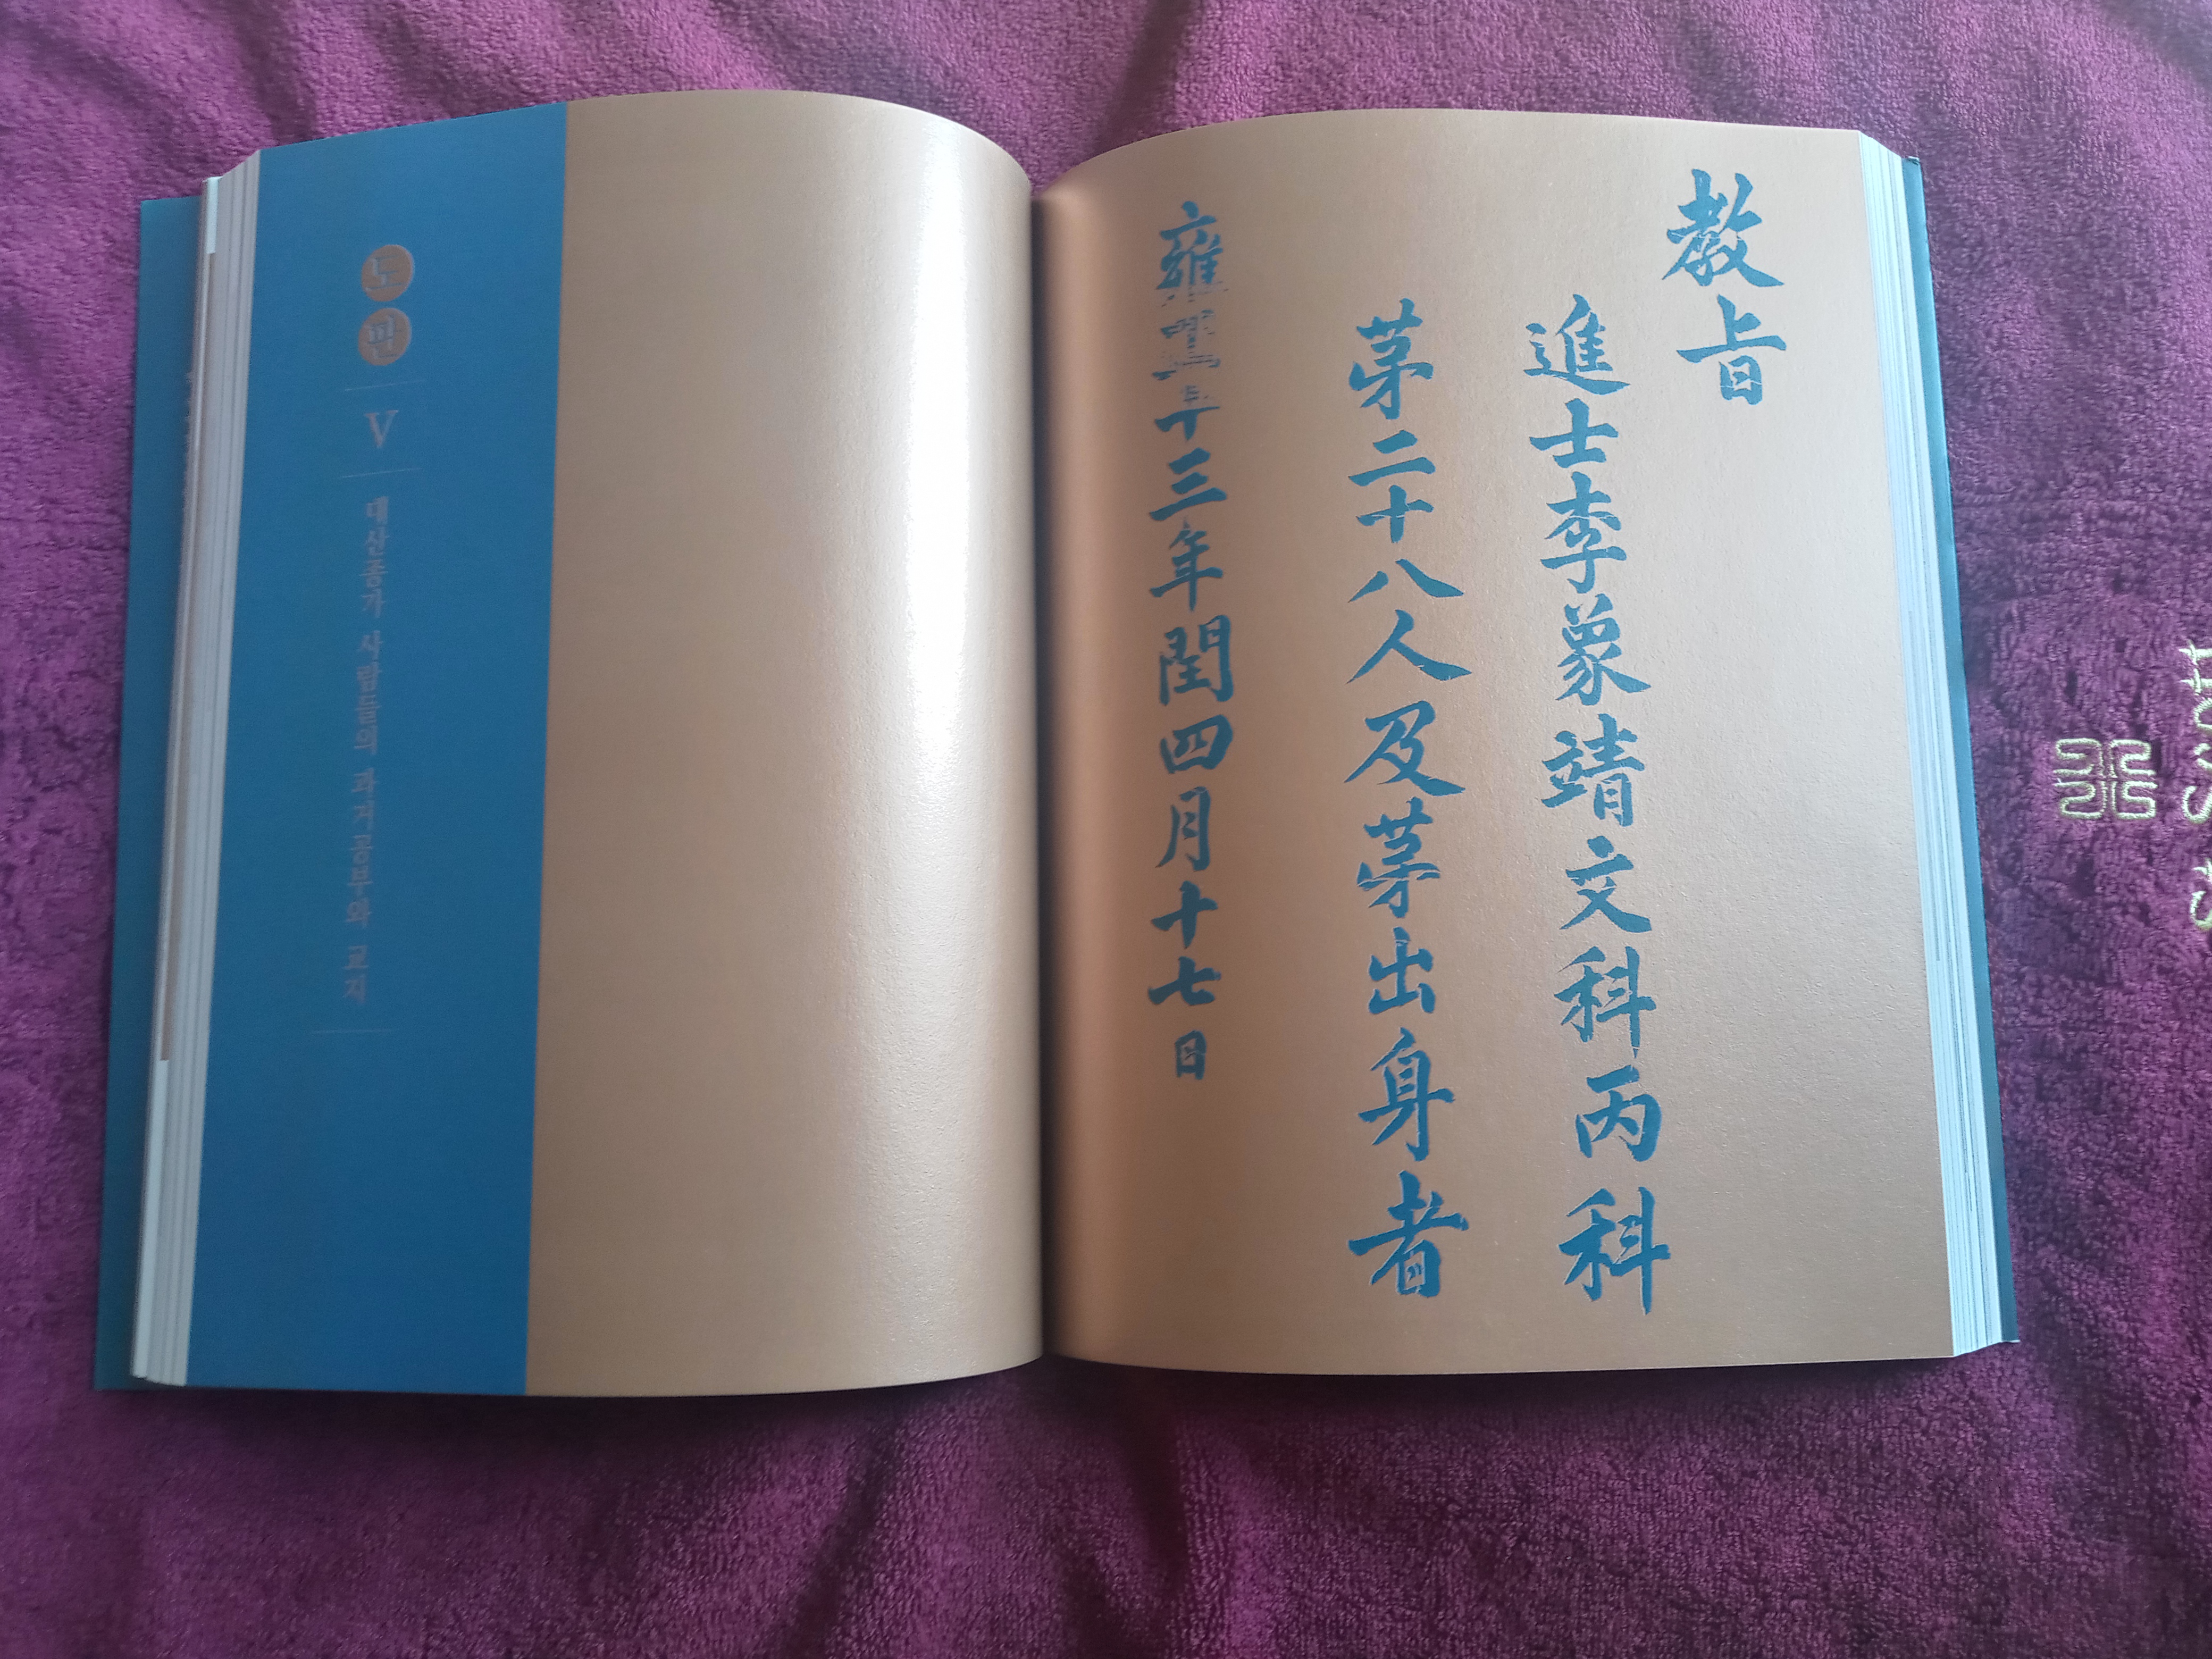 도판
V
대산종가 사람들의 과거공부와 교지
教旨
進士李象靖文科丙科
第二十八人及第出身者
雍正十三年閏四月十七日